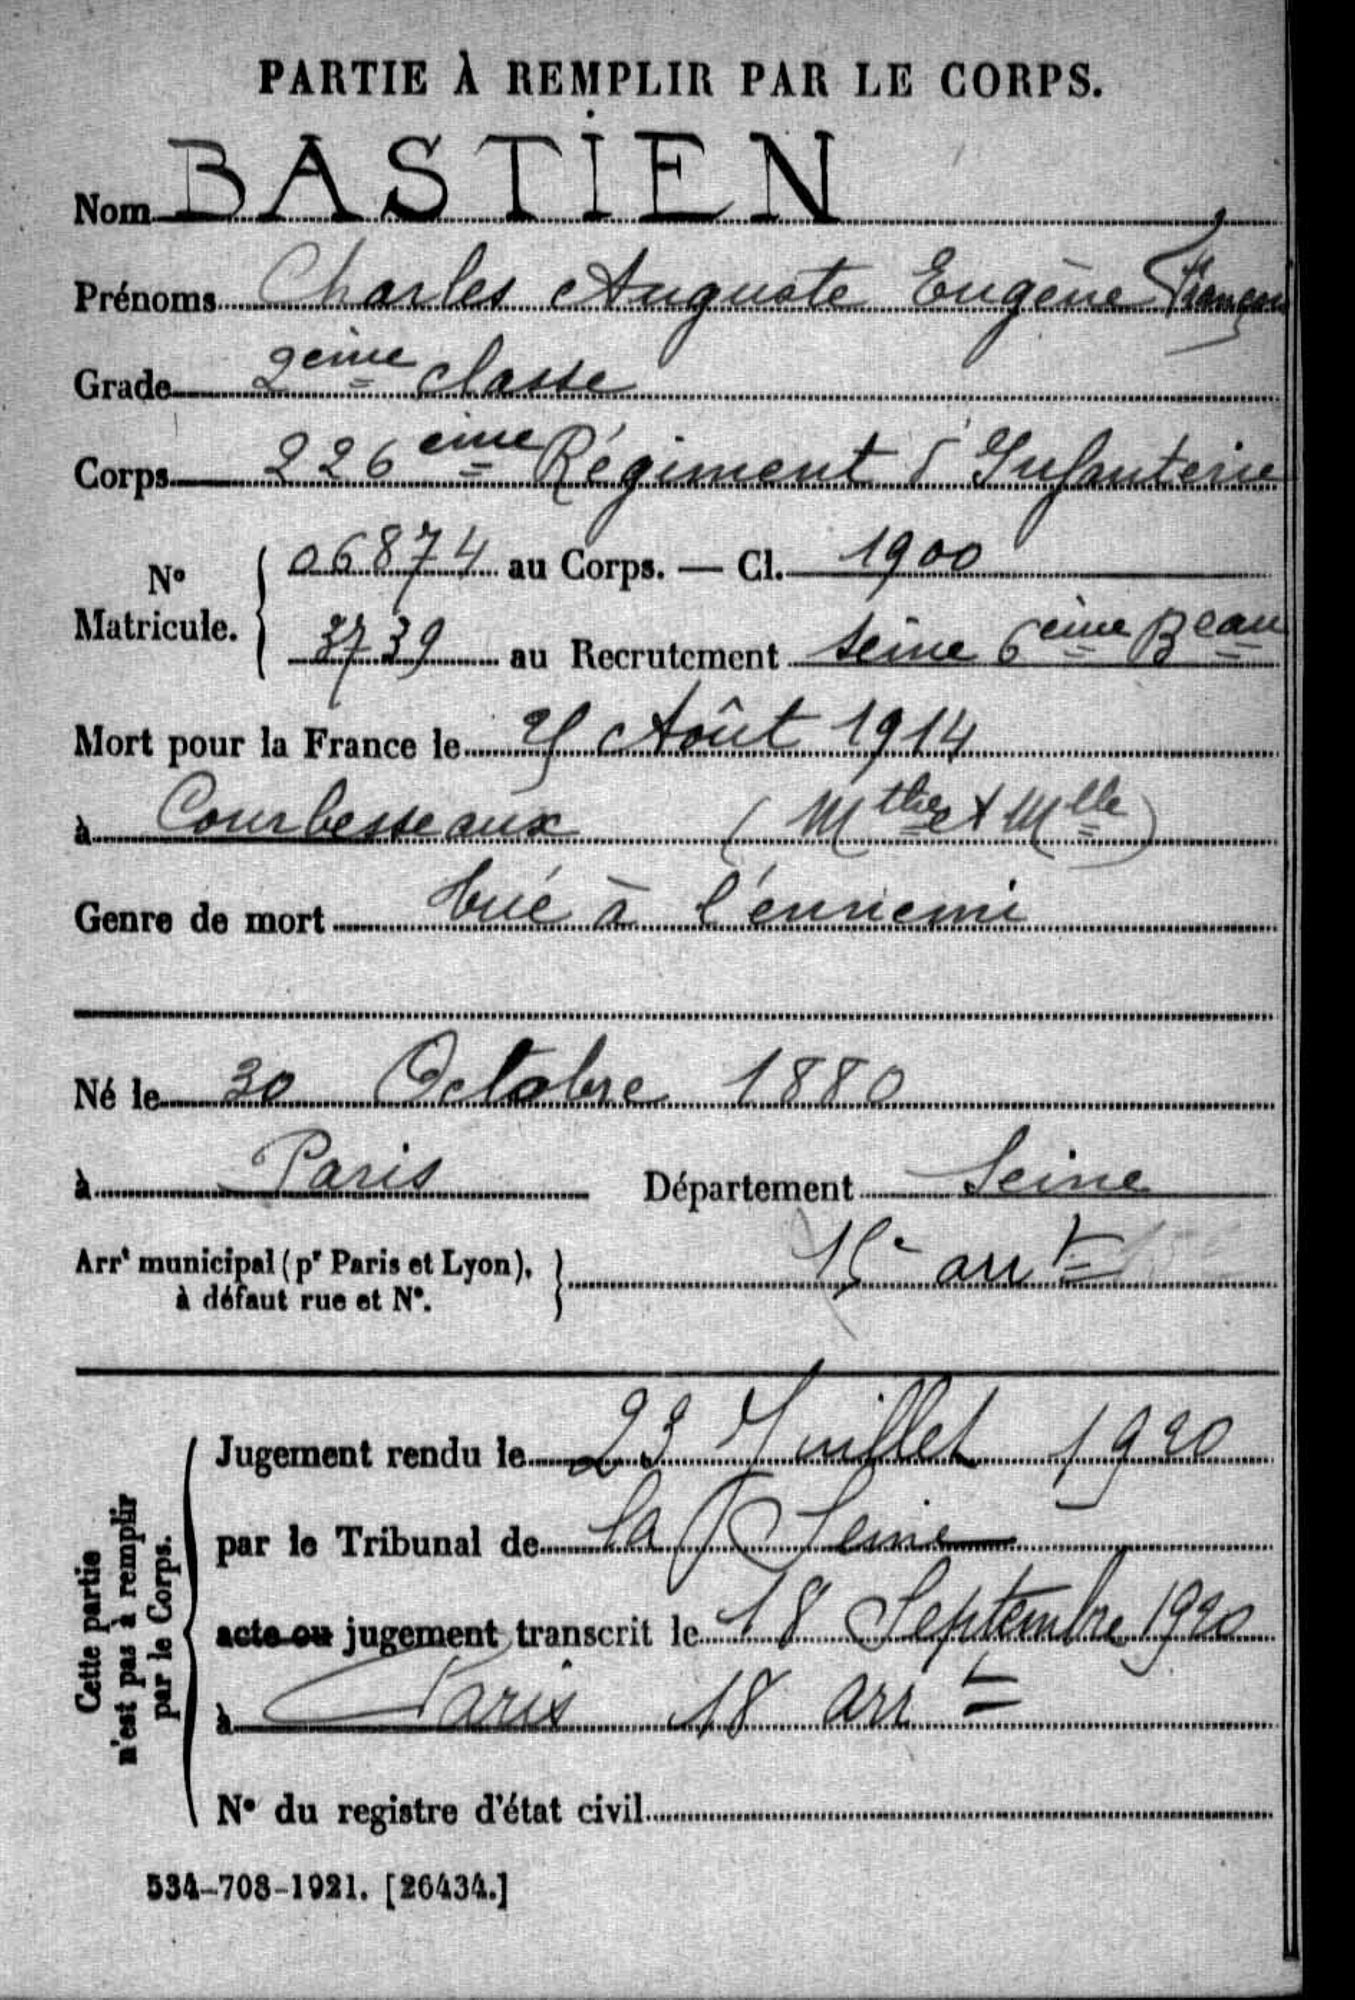 PARTIE À REMPLIR PAR LE CORPS.
Nom BASTIEN
Prénoms Charles Auguste Eugène François
Grade 2ème classe
Corps 226ème Régiment d'Infanterie
N° Matricule. { 06874 au Corps. — Cl. 1900
3739 au Recrutement Seine 6ème Beau
Mort pour la France le 25 Août 1914
à Courbesseaux (Mthe et Mlle)
Genre de mort tué à l'ennemi
Né le 30 Octobre 1880
à Paris Département Seine
Arrt municipal (pr Paris et Lyon), } 15e arrt
à défaut rue et N°.
Cette partie n'est pas à remplir par le Corps.
Jugement rendu le 23 Juillet 1920
par le Tribunal de la Seine
acte ou jugement transcrit le 18 Septembre 1920
à Paris 18 arrt
N° du registre d'état civil
534-708-1921. [26434.]